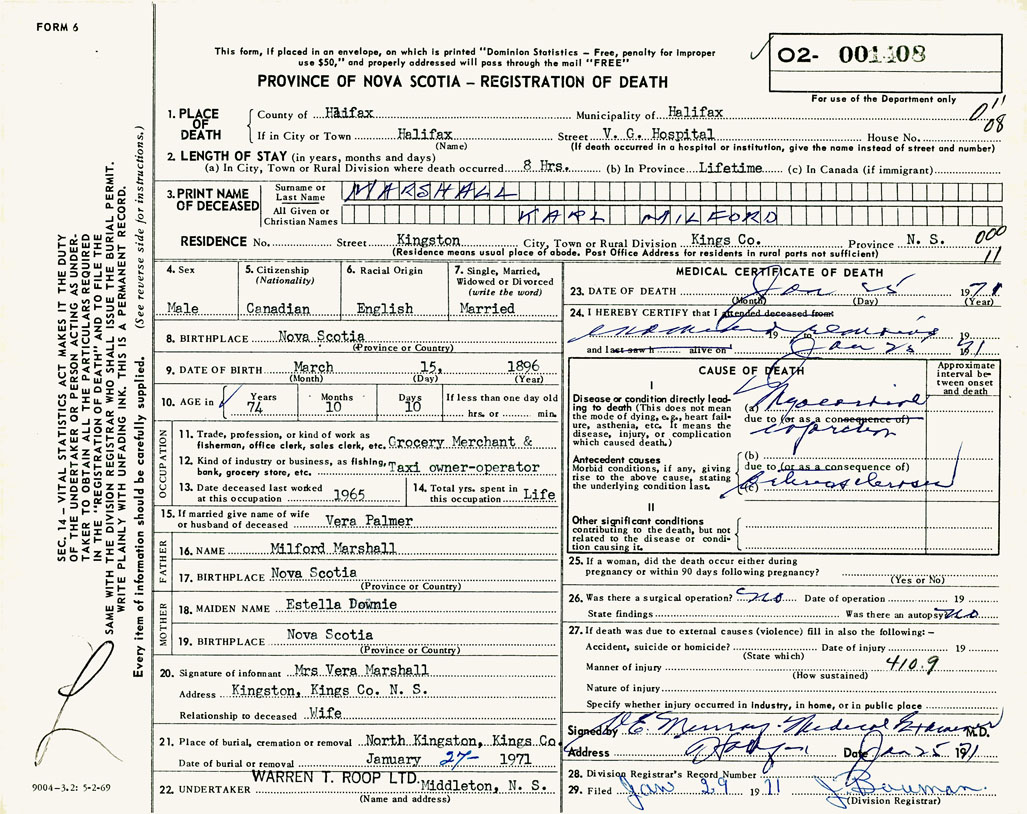 FORM 6
This form, if placed in an envelope, on which is printed "Dominion Statistics – Free, penalty for improper
use $50," and properly addressed will pass through the mail "FREE"
PROVINCE OF NOVA SCOTIA – REGISTRATION OF DEATH
O2- 001408
For use of the Department only
SEC. 14 – VITAL STATISTICS ACT MAKES IT THE DUTY
OF THE UNDERTAKER OR PERSON ACTING AS UNDER-
TAKER TO OBTAIN ALL THE PARTICULARS REQUIRED
IN THE "REGISTRATION OF DEATH" AND TO FILE THE
SAME WITH THE DIVISION REGISTRAR WHO SHALL ISSUE THE BURIAL PERMIT.
WRITE PLAINLY WITH UNFADING INK. THIS IS A PERMANENT RECORD.
Every item of information should be carefully supplied. (See reverse side for instructions.)
1. PLACE OF DEATH
County of Halifax Municipality of Halifax 11
If in City or Town Halifax Street V. G. Hospital House No. 08
(Name) (If death occurred in a hospital or institution, give the name instead of street and number)
2. LENGTH OF STAY (in years, months and days)
(a) In City, Town or Rural Division where death occurred 8 Hrs. (b) In Province Lifetime (c) In Canada (if immigrant)
3. PRINT NAME OF DECEASED
Surname or Last Name MARSHALL
All Given or Christian Names KARL MILFORD
RESIDENCE No. Street Kingston City, Town or Rural Division Kings Co. Province N. S. 000
(Residence means usual place of abode. Post Office Address for residents in rural parts not sufficient) 11
4. Sex
Male
5. Citizenship (Nationality)
Canadian
6. Racial Origin
English
7. Single, Married, Widowed or Divorced (write the word)
Married
8. BIRTHPLACE Nova Scotia
(Province or Country)
9. DATE OF BIRTH March 15, 1896
(Month) (Day) (Year)
10. AGE in Years 74 Months 10 Days 10 If less than one day old
hrs. or min.
OCCUPATION
11. Trade, profession, or kind of work as
fisherman, office clerk, sales clerk, etc. Grocery Merchant &
12. Kind of industry or business, as fishing,
bank, grocery store, etc. Taxi owner-operator
13. Date deceased last worked at this occupation 1965
14. Total yrs. spent in this occupation Life
15. If married give name of wife
or husband of deceased Vera Palmer
FATHER
16. NAME Milford Marshall
17. BIRTHPLACE Nova Scotia
(Province or Country)
MOTHER
18. MAIDEN NAME Estella Downie
19. BIRTHPLACE Nova Scotia
(Province or Country)
20. Signature of informant Mrs Vera Marshall
Address Kingston, Kings Co. N. S.
Relationship to deceased Wife
21. Place of burial, cremation or removal North Kingston, Kings Co.
Date of burial or removal January 27- 1971
22. UNDERTAKER WARREN T. ROOP LTD. Middleton, N. S.
(Name and address)
9004-3.2: 5-2-69
MEDICAL CERTIFICATE OF DEATH
23. DATE OF DEATH Jan 25 1971
(Month) (Day) (Year)
24. I HEREBY CERTIFY that I attended deceased from
examined remains 19 to 19
and last saw h alive on Jan 25 1971
CAUSE OF DEATH
Approximate interval between onset and death
I
Disease or condition directly lead-
ing to death (This does not mean
the mode of dying, e.g., heart fail-
ure, asthenia, etc. It means the
disease, injury, or complication
which caused death.)
(a) Myocardial
due to (or as a consequence of)
infarction
Antecedent causes
Morbid conditions, if any, giving
rise to the above cause, stating
the underlying condition last.
(b)
due to (or as a consequence of)
(c)
II
Other significant conditions
contributing to the death, but not
related to the disease or condi-
tion causing it.
25. If a woman, did the death occur either during
pregnancy or within 90 days following pregnancy?
(Yes or No)
26. Was there a surgical operation? no Date of operation 19
State findings Was there an autopsy no
27. If death was due to external causes (violence) fill in also the following:–
Accident, suicide or homicide? Date of injury 19
(State which)
Manner of injury 410.9
(How sustained)
Nature of injury
Specify whether injury occurred in industry, in home, or in public place
Signed by E. Murray Medical Examiner M.D.
Address Date Jan 25 1971
28. Division Registrar's Record Number
29. Filed Jan 29 1971 J. Bowman
(Division Registrar)